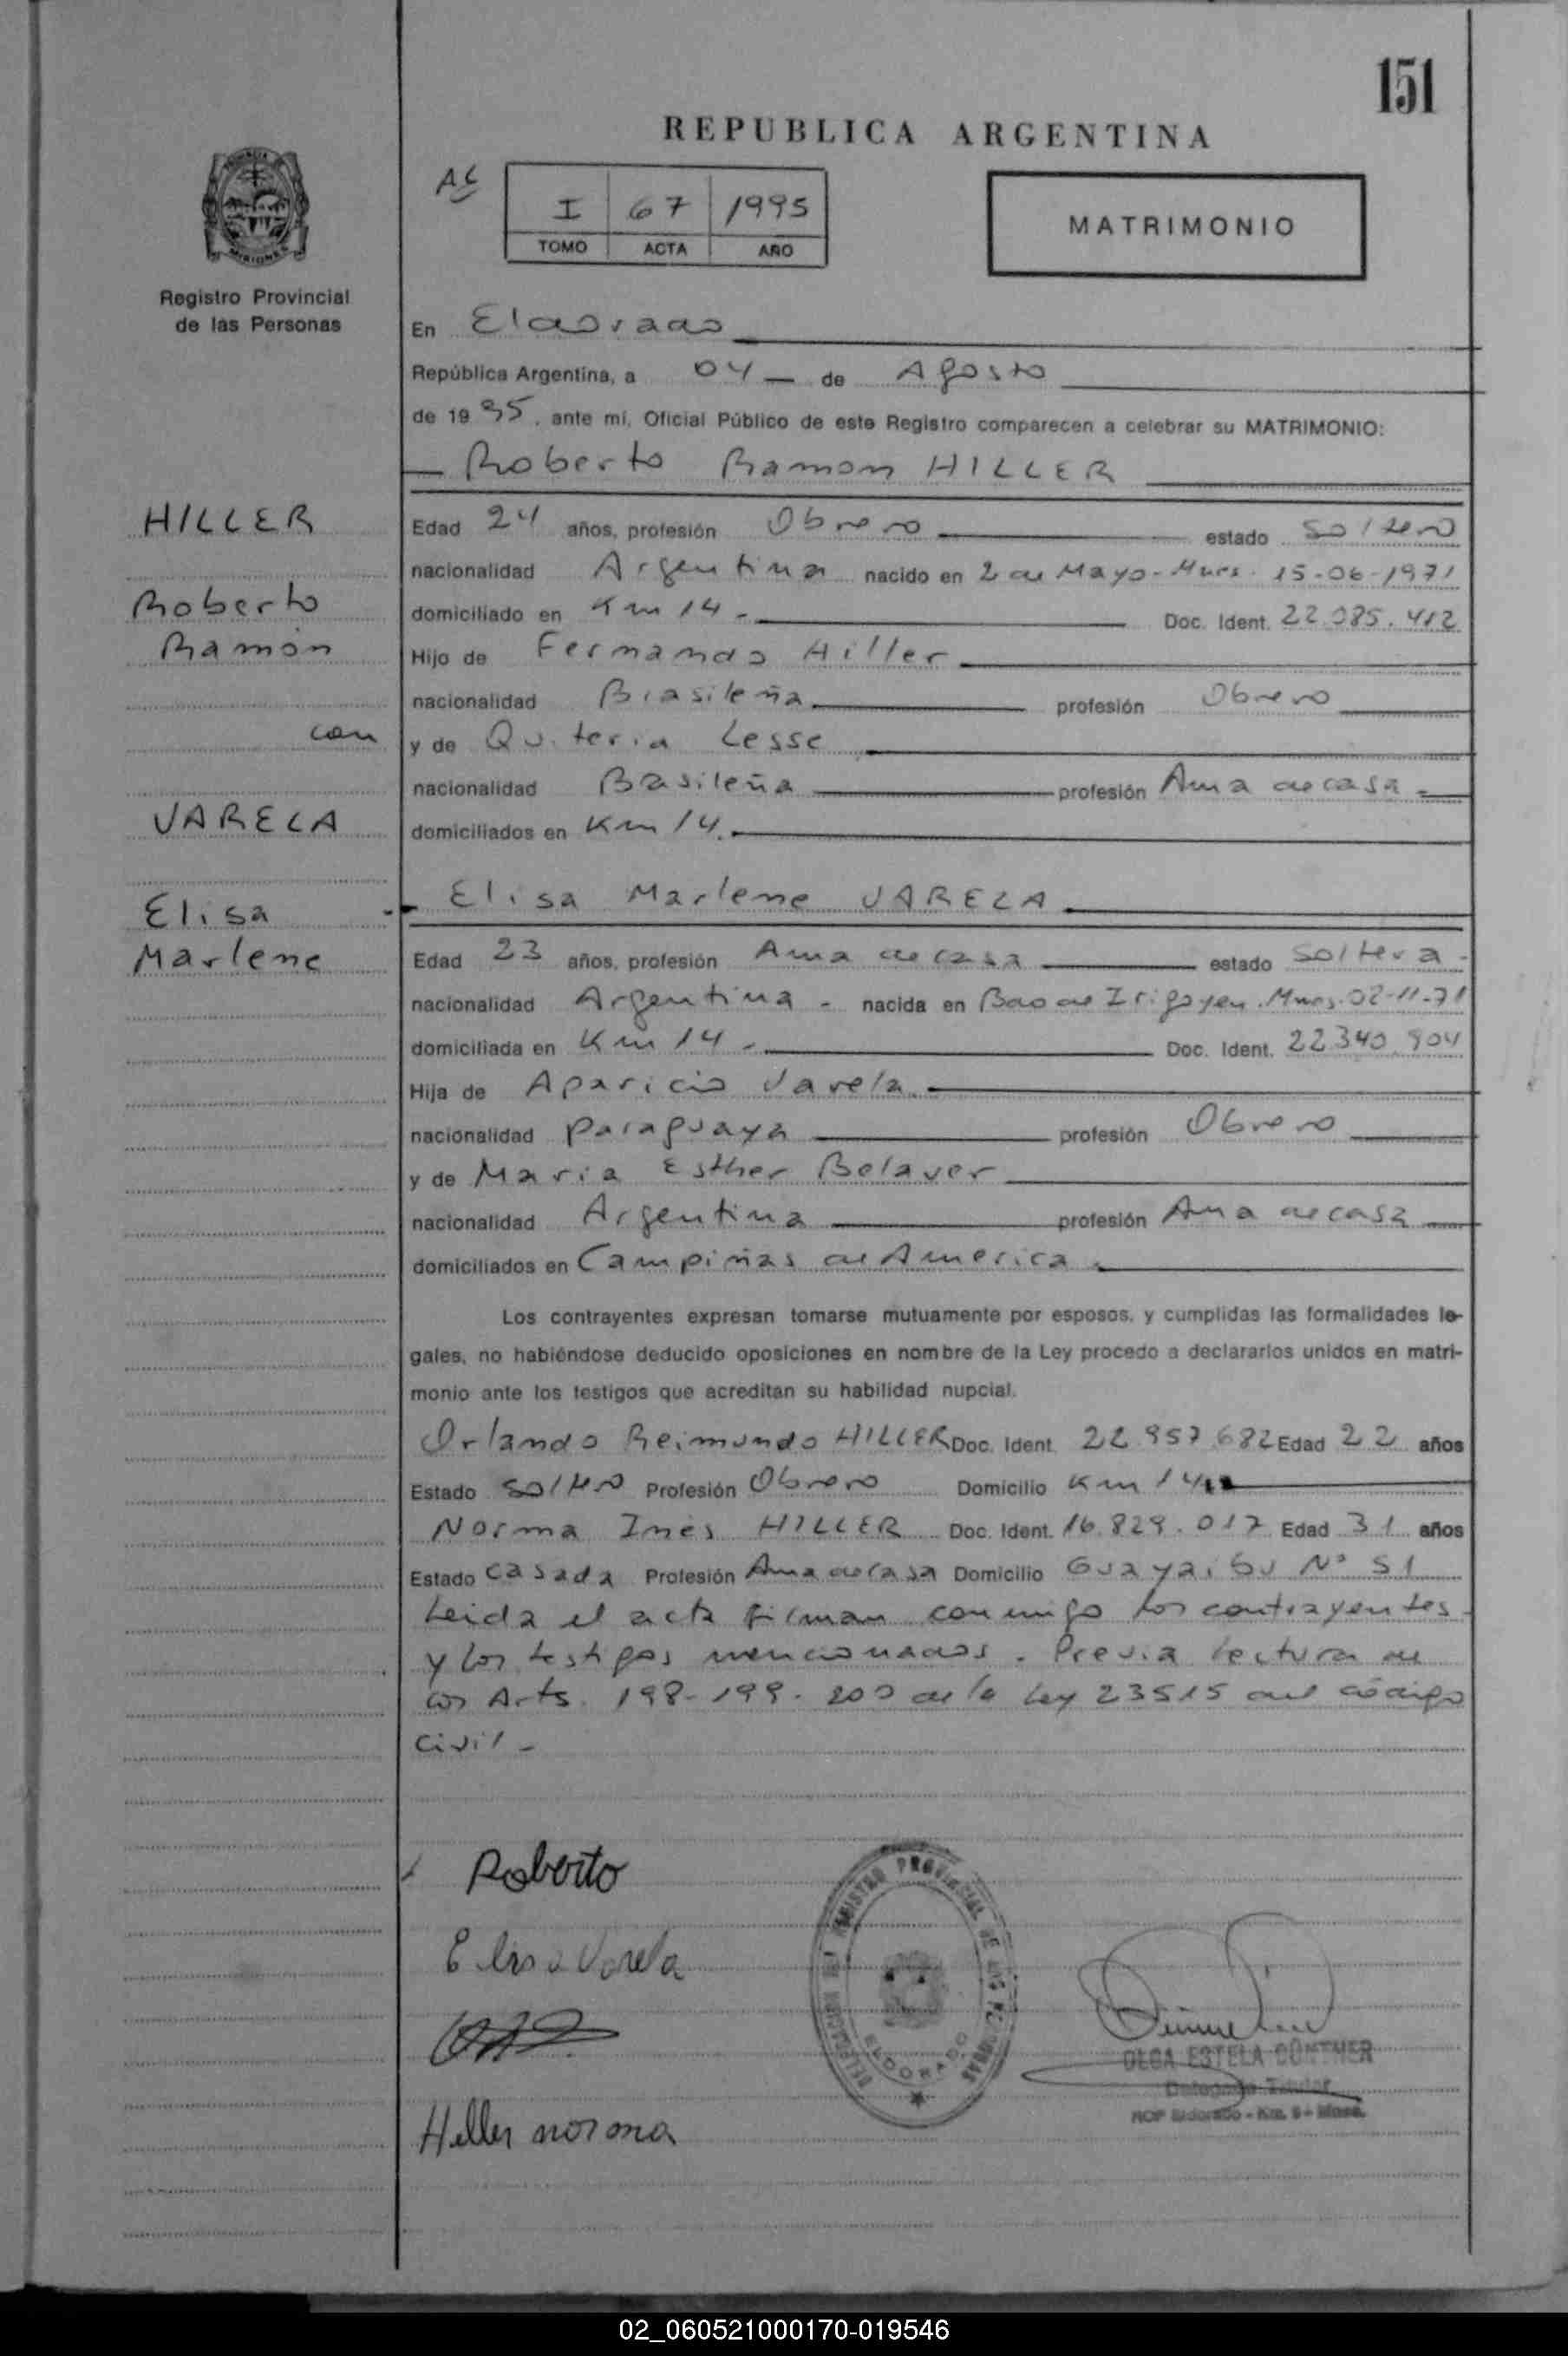 151
REPUBLICA ARGENTINA
A6
I 67 1995
TOMO ACTA AÑO
MATRIMONIO
Registro Provincial
de las Personas
En Eldorado
República Argentina, a 04 de Agosto
de 1995, ante mí, Oficial Público de este Registro comparecen a celebrar su MATRIMONIO:
Roberto Ramon HILLER
HILLER
Roberto
Ramón
con
VARELA
Elisa
Marlene
Edad 24 años, profesión Obrero estado soltero
nacionalidad Argentina nacido en 2 de Mayo - Mnes. 15-06-1971
domiciliado en Km 14 - Doc. Ident. 22.085.412
Hijo de Fernando Hiller
nacionalidad Brasileña profesión Obrero
y de Quiteria Lesse
nacionalidad Brasileña profesión Ama de casa -
domiciliados en Km 14.
Elisa Marlene VARELA
Edad 23 años, profesión Ama de casa estado soltera -
nacionalidad Argentina - nacida en Bdo de Irigoyen. Mnes. 02-11-71
domiciliada en Km 14 - Doc. Ident. 22.340.904
Hija de Aparicio Varela.
nacionalidad paraguaya profesión Obrero
y de Maria Esther Belaver
nacionalidad Argentina profesión Ama de casa
domiciliados en Campiñas de America.
Los contrayentes expresan tomarse mutuamente por esposos, y cumplidas las formalidades le-
gales, no habiéndose deducido oposiciones en nombre de la Ley procedo a declararlos unidos en matri-
monio ante los testigos que acreditan su habilidad nupcial.
Orlando Reimundo HILLER Doc. Ident. 22.957.682 Edad 22 años
Estado soltero Profesión Obrero Domicilio Km 14
Norma Inés HILLER Doc. Ident. 16.829.017 Edad 31 años
Estado casada Profesión Ama de casa Domicilio Guayaibu N° 51
Leida el acta firman conmigo los contrayentes
y los testigos mencionados. Previa lectura de
los Arts. 198-199-200 de la Ley 23515 del código
civil -
Roberto
Elisa Varela
Hiller norma
DELEGACION DEL REGISTRO PROVINCIAL DE LAS PERSONAS
ELDORADO
OLGA ESTELA GÜNTHER
Delegada Titular
RCP Eldorado - Km. 9 - Mnes.
02_060521000170-019546